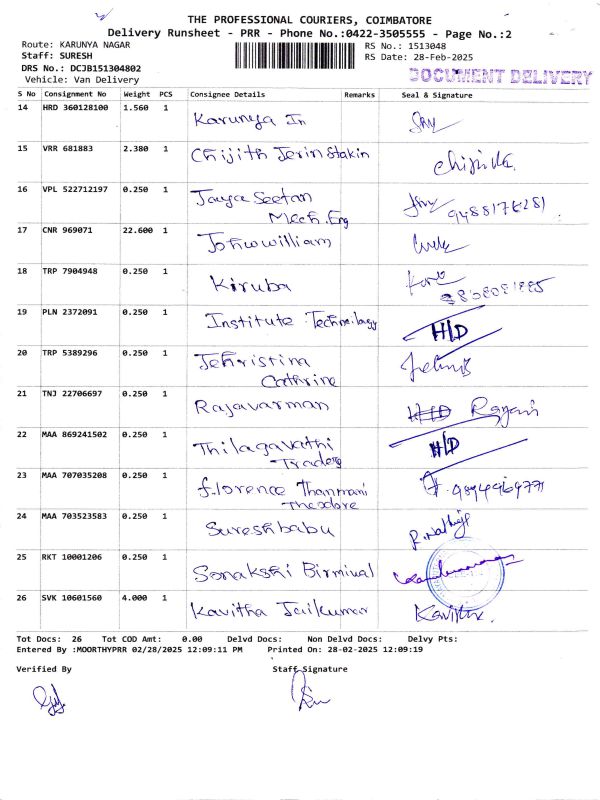 THE PROFESSIONAL COURIERS, COIMBATORE
Delivery Runsheet - PRR - Phone No.:0422-3505555 - Page No.:2
Route: KARUNYA NAGAR
RS No.: 1513048
Staff: SURESH
RS Date: 28-Feb-2025
DRS No.: DCJB151304802
DOCUMENT DELIVERY
Vehicle: Van Delivery
S No Consignment No Weight PCS Consignee Details Remarks Seal & Signature
14 HRD 360128100 1.560 1 Karunya In
15 VRR 681883 2.380 1 Chijith Jerin Stakin
16 VPL 522712197 0.250 1 Jaya Seetan
Mech. Eng
17 CNR 969071 22.600 1 John william
18 TRP 7904948 0.250 1 Kiruba
19 PLN 2372091 0.250 1 Institute Technology H/D
20 TRP 5389296 0.250 1 Jehristina
Cathrine
21 TNJ 22706697 0.250 1 Rajavarman
22 MAA 869241502 0.250 1 Thilagavathi H/D
Traders
23 MAA 707035208 0.250 1 Florence Thanmani
Theodore
24 MAA 703523583 0.250 1 Sureshbabu
25 RKT 10001206 0.250 1 Sonakshi Birmiwal
26 SVK 10601560 4.000 1 Kavitha Jaikumar Kavitha
Tot Docs: 26 Tot COD Amt: 0.00 Delvd Docs: Non Delvd Docs: Delvy Pts:
Entered By :MOORTHYPRR 02/28/2025 12:09:11 PM Printed On: 28-02-2025 12:09:19
Verified By Staff Signature